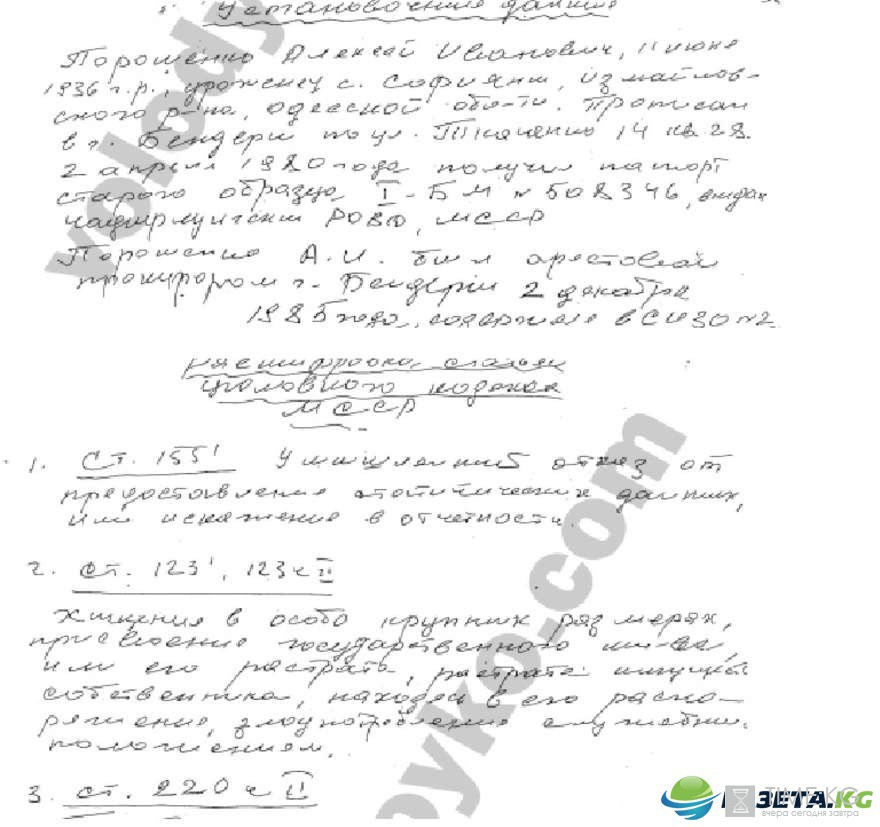 Установочные данные
Порошенко Алексей Иванович, 11 июня
1936 г.р., уроженец с. Софияны, измайлов-
ского р-на, одесской обл-ти. Прописан
в г. Бендеры по ул. Ткаченко 14 кв. 28.
2 апреля 1980 года получил паспорт
старого образца I-БМ № 508346, выдан
РОВД, МССР
Порошенко А.И. был арестован
прокурором г. Бендеры 2 декабря
1985 года, содержался в СИЗО №2.
расшифровка статьях
уголовного кодекса
МССР
1. Ст. 155¹ Умышленный отказ от
предоставления статитических данных,
или искажение в отчетности.
2. Ст. 123¹, 123 ч II
Хищение в особо крупных размерах,
присвоение государственного им-ва,
или его растрата, растрата
собственника, находясь в его распо-
ряжение, злоупотребление служебным
положением.
3. Ст. 220 ч II
volody
pyko.com
ГАЗЕТА.KG
TIME.KG
вчера сегодня завтра